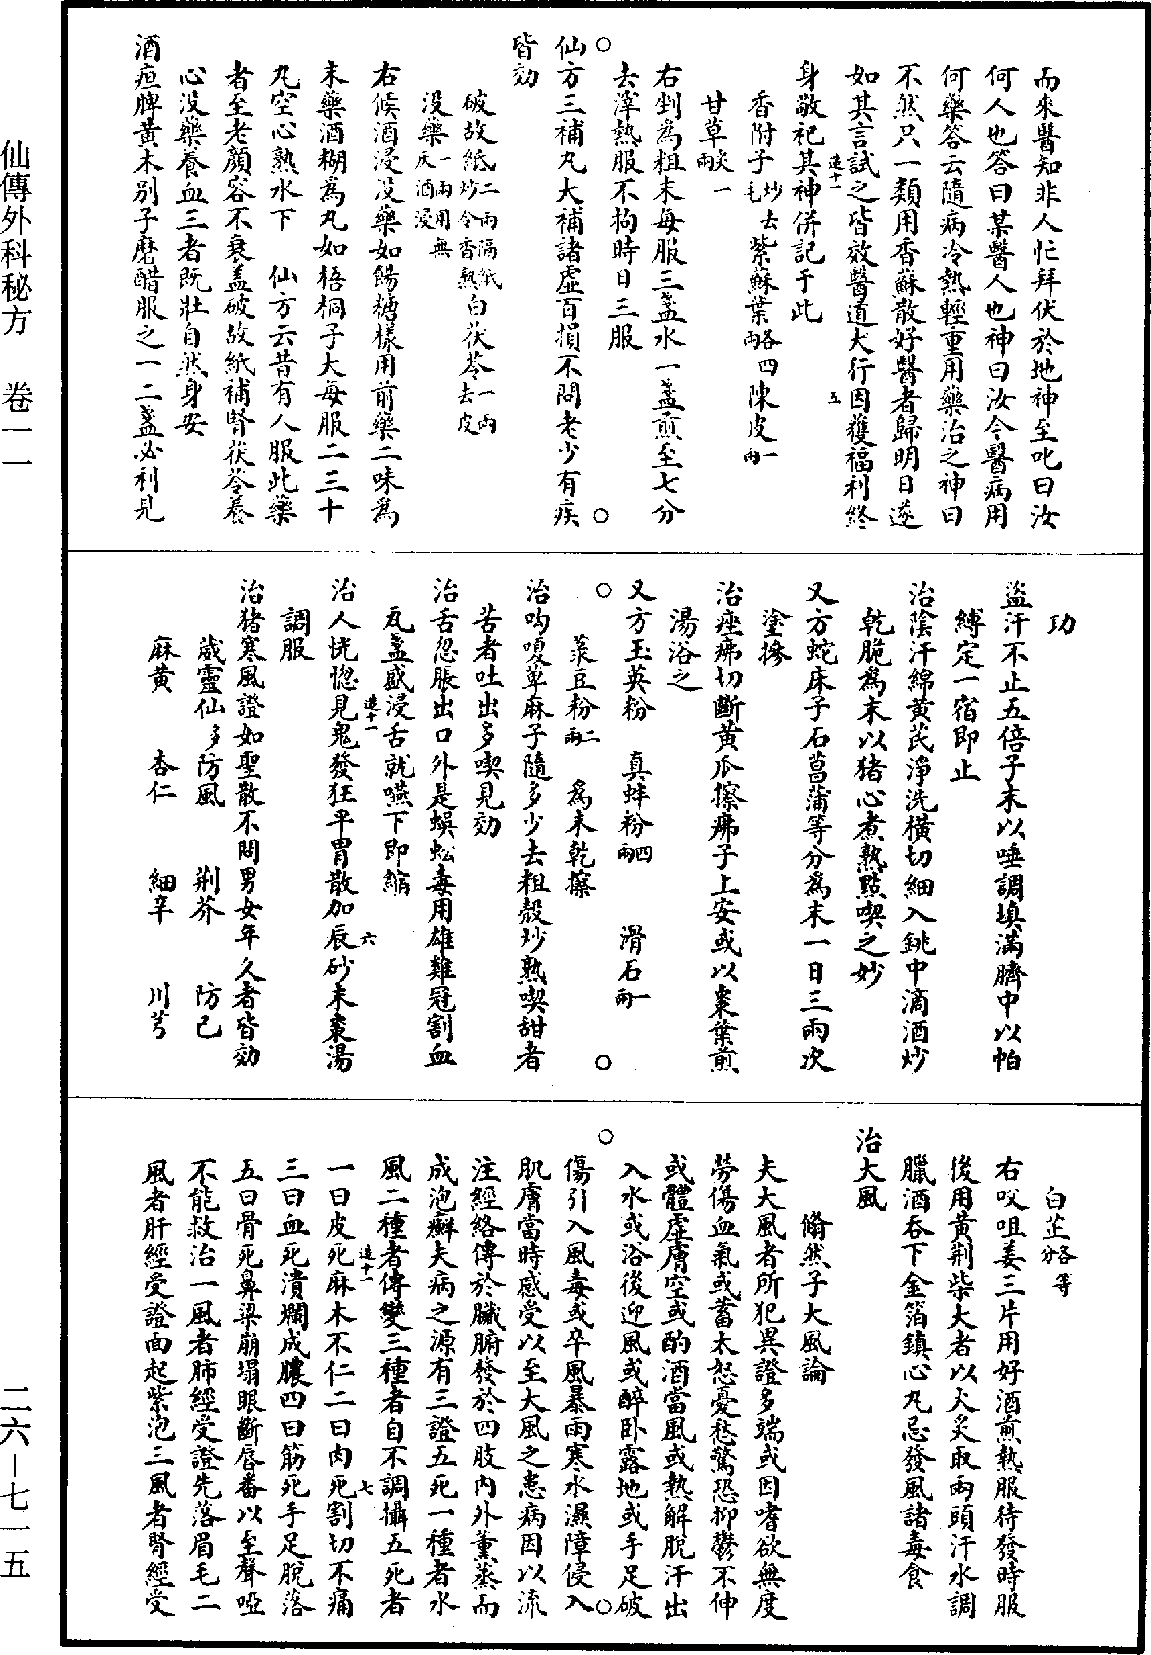 而來醫知非人忙拜伏於地神至叱曰汝
何人也答曰某醫人也神曰汝今醫病用
何藥答云隨病冷熱輕重用藥治之神曰
不然只一類用香蘇散好醫者歸明日遂
如其言試之皆效醫道大行因獲福利終
遠十一　五
身敬祀其神併記于此
香附子炒去毛　紫蘇葉各四兩　陳皮一兩
甘草炙一兩
右剉為粗末每服三盞水一盞煎至七分
去滓熱服不拘時日三服
仙方三補丸大補諸虛百損不問老少有疾
皆効
破故紙二兩隔紙炒令香熟　白茯苓一兩去皮
没藥一兩用無灰酒浸
右候酒浸没藥如餳糖樣用前藥二味為
末藥酒糊為丸如梧桐子大每服二三十
丸空心熟水下　仙方云昔有人服此藥
者至老顏容不衰盖破故紙補腎茯苓養
心没藥養血三者既壯自然身安
酒疸脾黄木別子磨醋服之一二盞必利見
功
盜汗不止五倍子末以唾調填滿臍中以帕
縛定一宿即止
治陰汗綿黄芪淨洗橫切細入銚中滴酒炒
乾脆為末以猪心煮熟點喫之妙
又方蛇床子石菖蒲等分為末一日三兩次
塗摻
治痤疿切斷黄瓜擦疿子上安或以棗葉煎
湯浴之
又方玉英粉　真蚌粉四兩　滑石一兩
菉豆粉二兩　為末乾擦
治呴嗄萆麻子隨多少去粗殼炒熟喫甜者
苦者吐出多喫見効
治舌忽脹出口外是蜈蚣毒用雄雞冠割血
瓦盞盛浸舌就嚥下即縮
遠十一　六
治人恍惚見鬼發狂平胃散加辰砂末棗湯
調服
治猪寒風證如聖散不問男女年久者皆効
葳靈仙多　防風　荆芥　防己
麻黄　杏仁　細辛　川芎
白芷各等分
右㕮咀姜三片用好酒煎熟服待發時服
後用黄荆柴大者以火炙取兩頭汗水調
臘酒吞下金箔鎮心丸忌發風諸毒食
治大風
翛然子大風論
夫大風者所犯異證多端或因嗜欲無度
勞傷血氣或蓄太怒憂愁驚恐抑鬱不伸
或體虛膚空或酌酒當風或熱解脱汗出
入水或浴後迎風或醉卧露地或手足破
傷引入風毒或卒風暴雨寒水濕障侵入
肌膚當時感受以至大風之患病因以流
注經絡傳於臟腑發於四肢内外薰蒸而
成泡癬夫病之源有三證五死一種者水
風二種者傳變三種者自不調攝五死者
遠十一　七
一曰皮死麻木不仁二曰肉死割切不痛
三曰血死潰爛成膿四曰筋死手足脱落
五曰骨死鼻梁崩塌眼斷唇番以至聲啞
不能救治一風者肺經受證先落眉毛二
風者肝經受證面起紫泡三風者腎經受
仙傳外科秘方　卷一一
二六—七一五